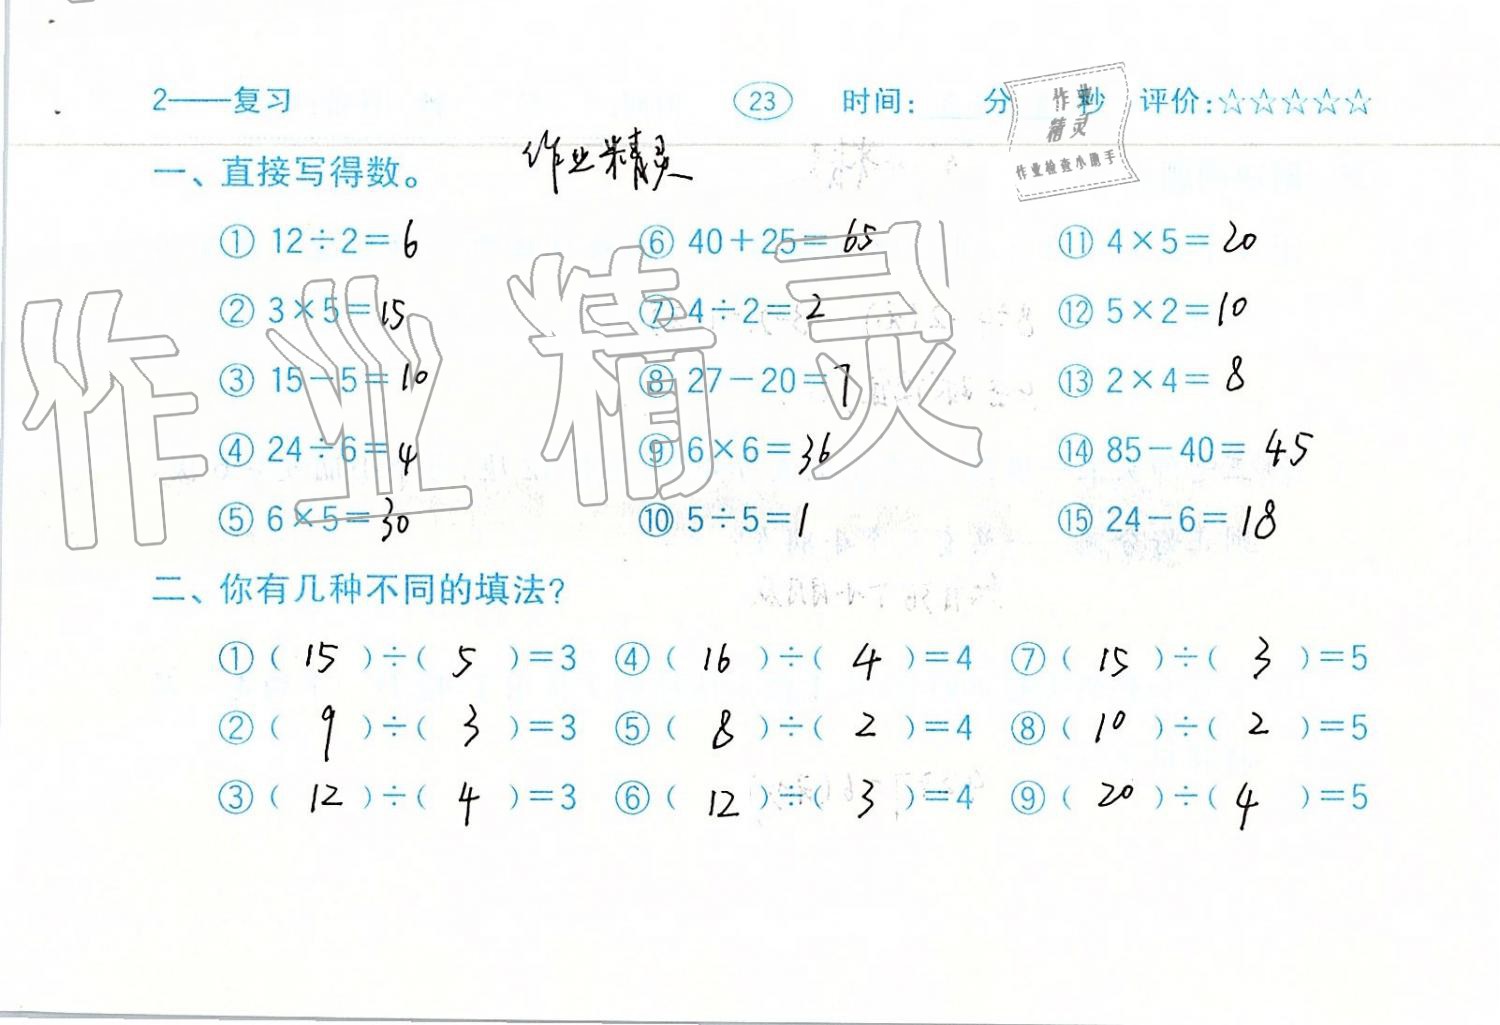 2——复习 23 时间: 分 秒 评价:☆☆☆☆☆
作业
精灵
作业检查小助手
作业精灵
一、直接写得数。
① 12÷2=6 ⑥ 40+25=65 ⑪ 4×5=20
② 3×5=15 ⑦ 4÷2=2 ⑫ 5×2=10
③ 15-5=10 ⑧ 27-20=7 ⑬ 2×4=8
④ 24÷6=4 ⑨ 6×6=36 ⑭ 85-40=45
⑤ 6×5=30 ⑩ 5÷5=1 ⑮ 24-6=18
作业精灵
二、你有几种不同的填法?
①( 15 )÷( 5 )=3 ④( 16 )÷( 4 )=4 ⑦( 15 )÷( 3 )=5
②( 9 )÷( 3 )=3 ⑤( 8 )÷( 2 )=4 ⑧( 10 )÷( 2 )=5
③( 12 )÷( 4 )=3 ⑥( 12 )÷( 3 )=4 ⑨( 20 )÷( 4 )=5